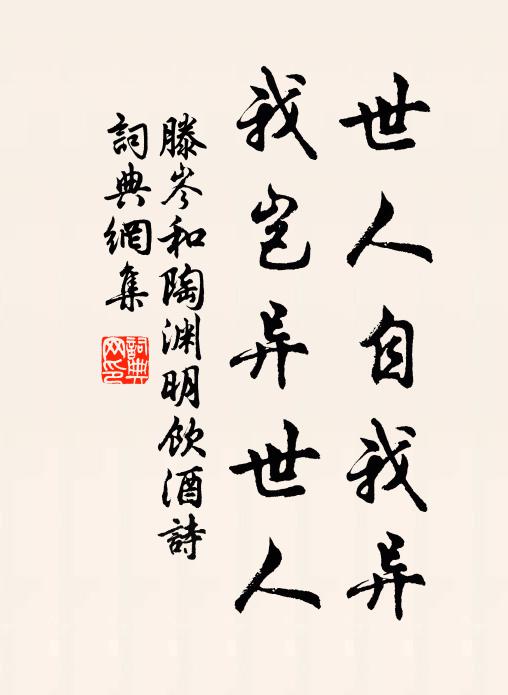 世人自我异
我岂异世人
滕岑和陶渊明饮酒詩
詞典網集
詞典网印